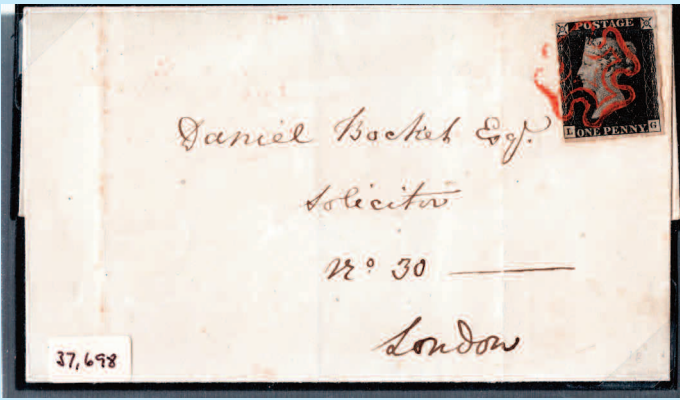 POSTAGE
L ONE PENNY. G
Daniel Bocket Esqr.
Solicitor
No 30
London
37,698